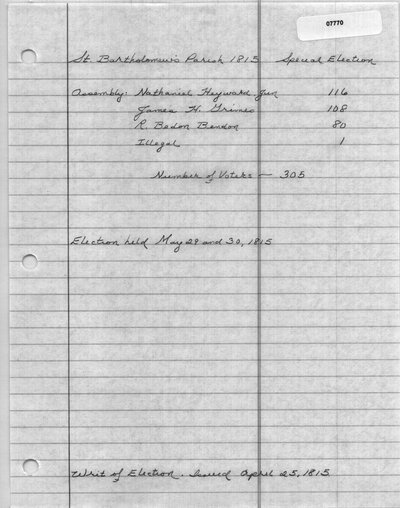 07770
St. Bartholomew's Parish 1815 Special Election
Assembly: Nathaniel Heyward Jun 116
James H. Grimes 108
R. Bedon Bendon 80
Illegal 1
Number of Voters — 305
Election held May 29 and 30, 1815
Writ of Election. Issued April 25, 1815